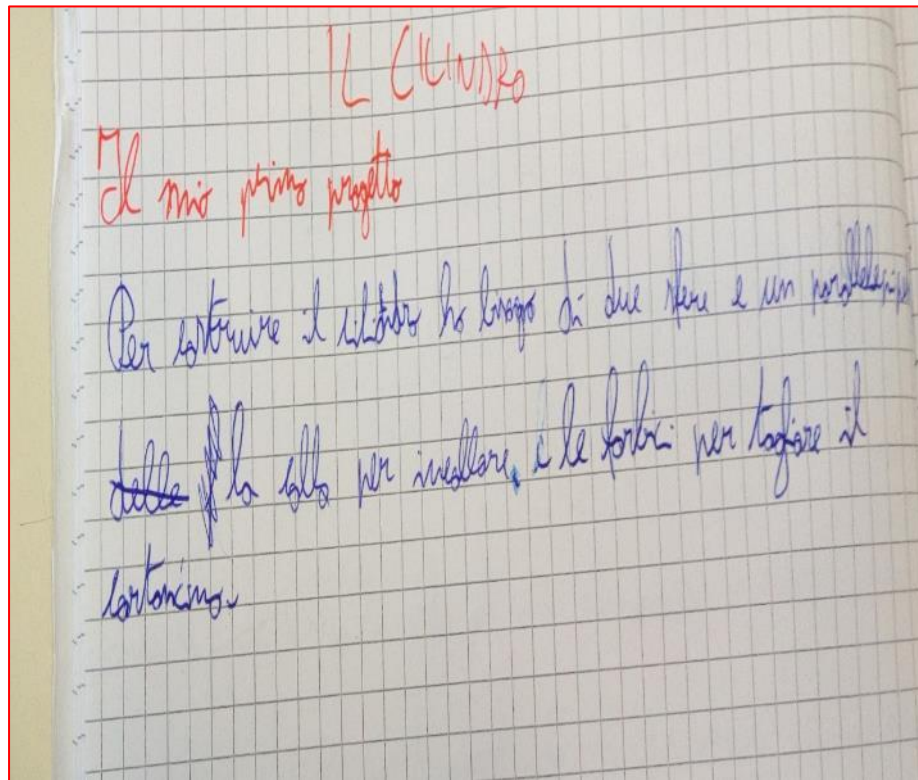 IL CILINDRO
Il mio primo progetto
Per costruire il cilindro ho bisogo di due sfere e un parallelepipedo
delle la colla per incollare e le forbici per tagliare il
cartoncino.